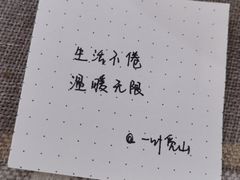 生活不倦
温暖无限
@一叶觅山